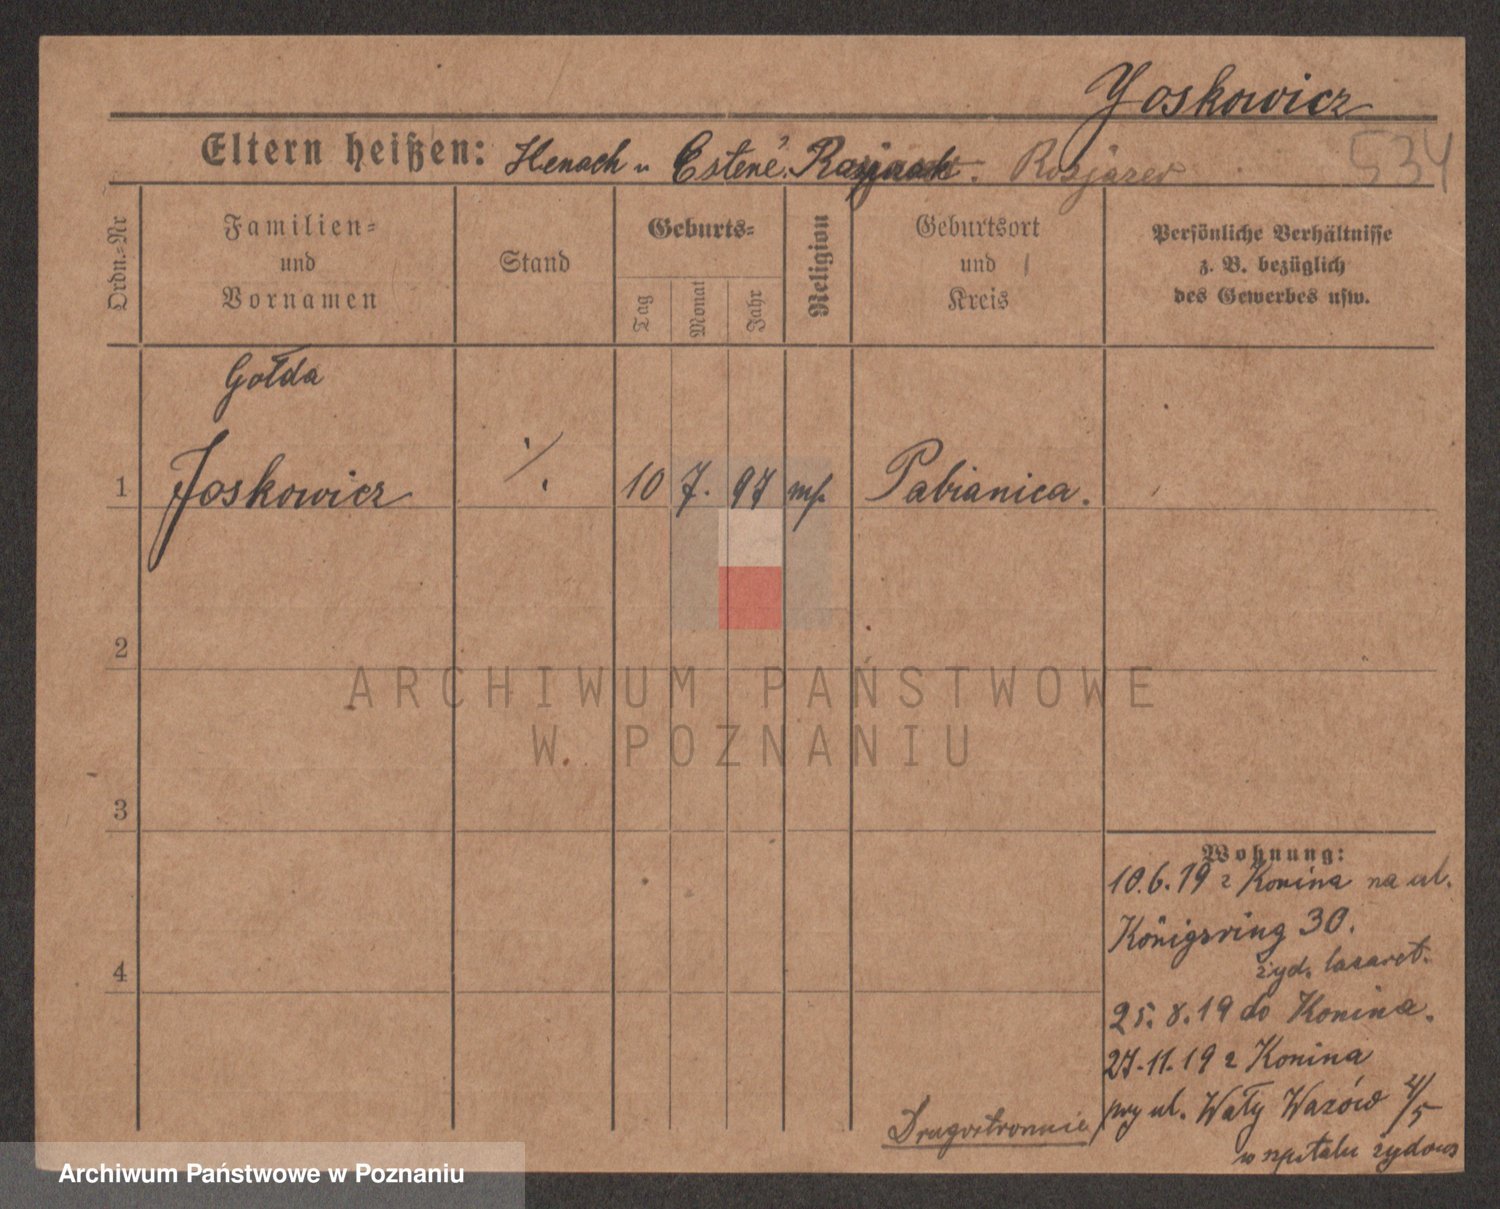 Joskowicz
534
Eltern heißen: Henach u Esterē Rozjazev
Ordn.=Nr
Familien=
und
Vornamen
Stand
Geburts=
Tag
Monat
Jahr
Religion
Geburtsort
und
Kreis
Persönliche Verhältnisse
z. B. bezüglich
des Gewerbes usw.
Gołda
1 Joskowicz ./. 10 7. 97 mj. Pabianica.
2
3
4
Wohnung:
10.6.19 z Konina na ul.
Königsring 30.
żyd. lazaret.
25.8.19 do Konina.
27.11.19 z Konina
przy ul. Wały Wazów 4/5
w szpitalu żydows
Drugostronnie
ARCHIWUM PAŃSTWOWE
W POZNANIU
Archiwum Państwowe w Poznaniu